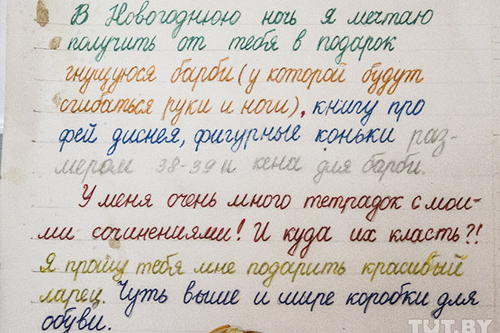 В Новогоднюю ночь я мечтаю
получить от тебя в подарок
гнущуюся барби (у которой будут
сгибаться руки и ноги), книгу про
фей диснея, фигурные коньки раз-
мером 38-39 и кена для барби.
У меня очень много тетрадок с мои-
ми сочинениями! И куда их класть?!
Я прошу тебя мне подарить красивый
ларец. Чуть выше и шире коробки для
обуви.
TUT.BY